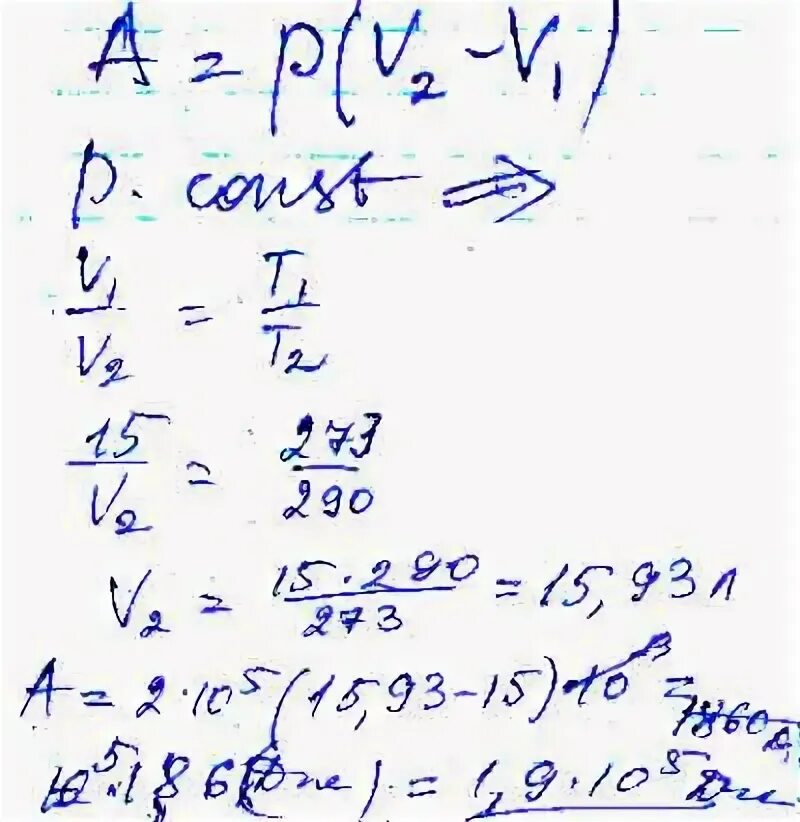 A = p(V₂ - V₁)
p. const ⇒
V₁/V₂ = T₁/T₂
15/V₂ = 273/290
V₂ = 15·290/273 = 15,93 л
A = 2·10⁵(15,93-15)·10⁻³ =
10⁵·1,86(Дж) = 1,9·10⁵ Дж